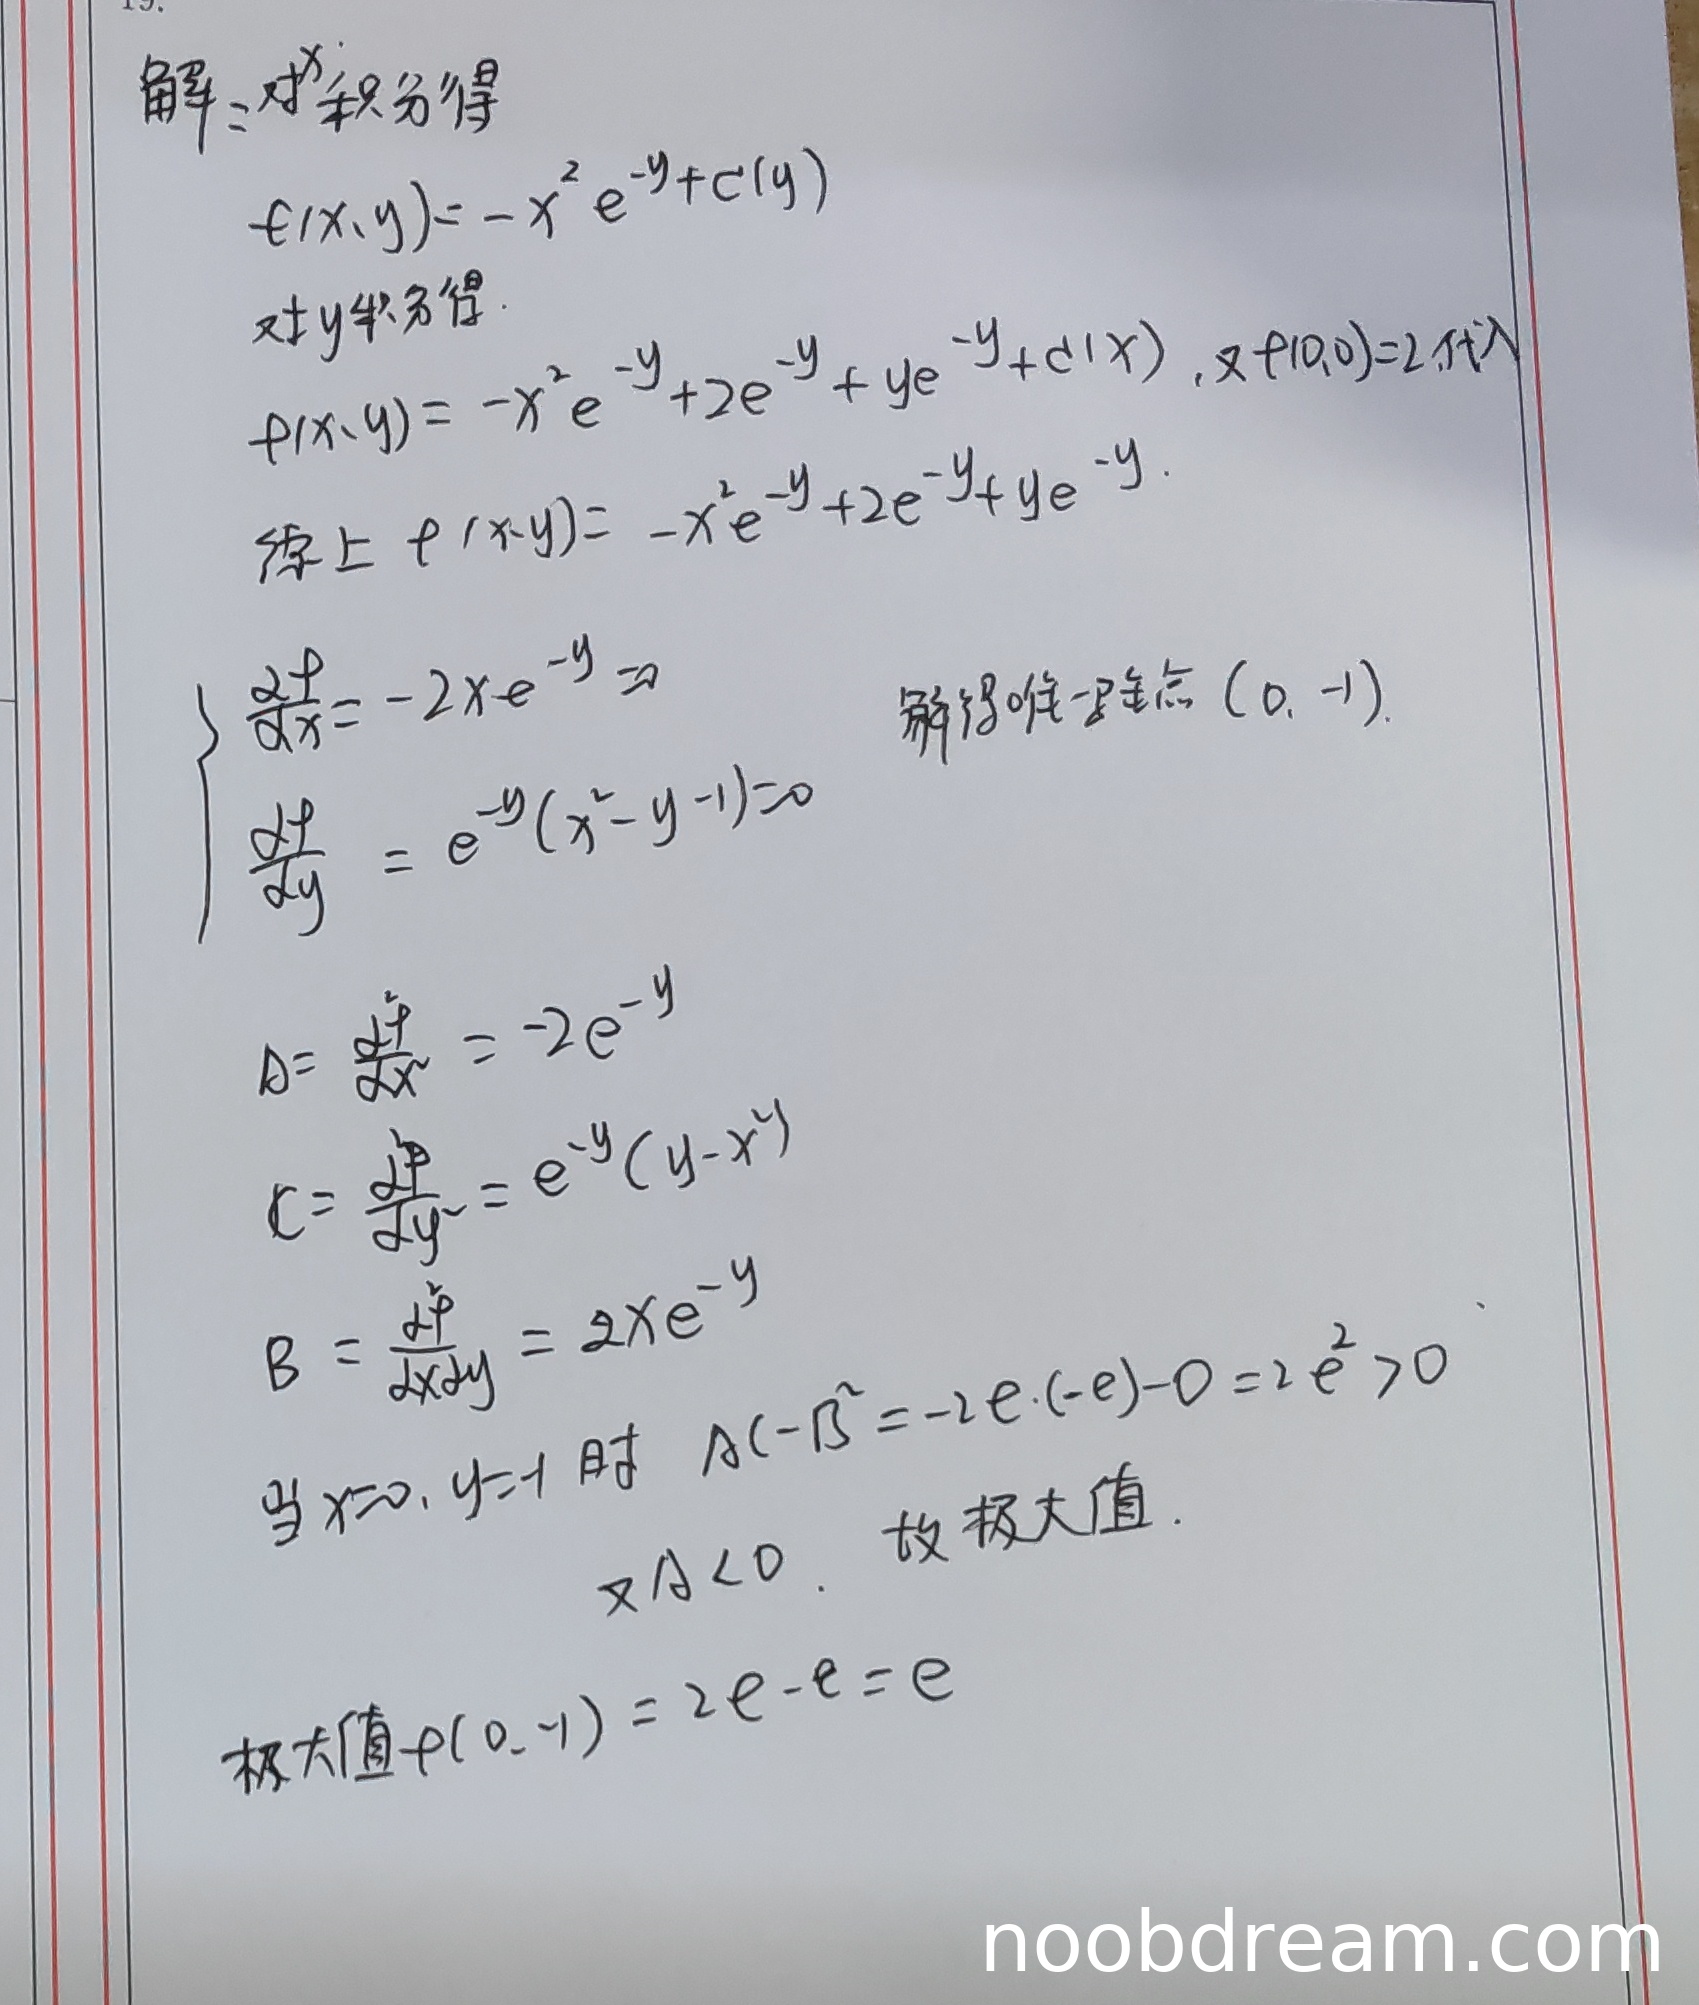 19.
解：对x积分得
f(x、y)=-x²e^{-y}+c(y)
对y积分得.
f(x、y)=-x²e^{-y}+2e^{-y}+ye^{-y}+c(x),又f(0,0)=2,代入
综上 f(x、y)=-x²e^{-y}+2e^{-y}+ye^{-y}.
∂f/∂x=-2xe^{-y}=0 解得唯一驻点(0,-1).
∂f/∂y=e^{-y}(x²-y-1)=0
A=∂²f/∂x²=-2e^{-y}
C=∂²f/∂y²=e^{-y}(y-x²)
B=∂²f/∂x∂y=2xe^{-y}
当x=0,y=-1时 AC-B²=-2e·(-e)-0=2e²>0
又A<0. 故极大值.
极大值f(0,-1)=2e-e=e
noobdream.com